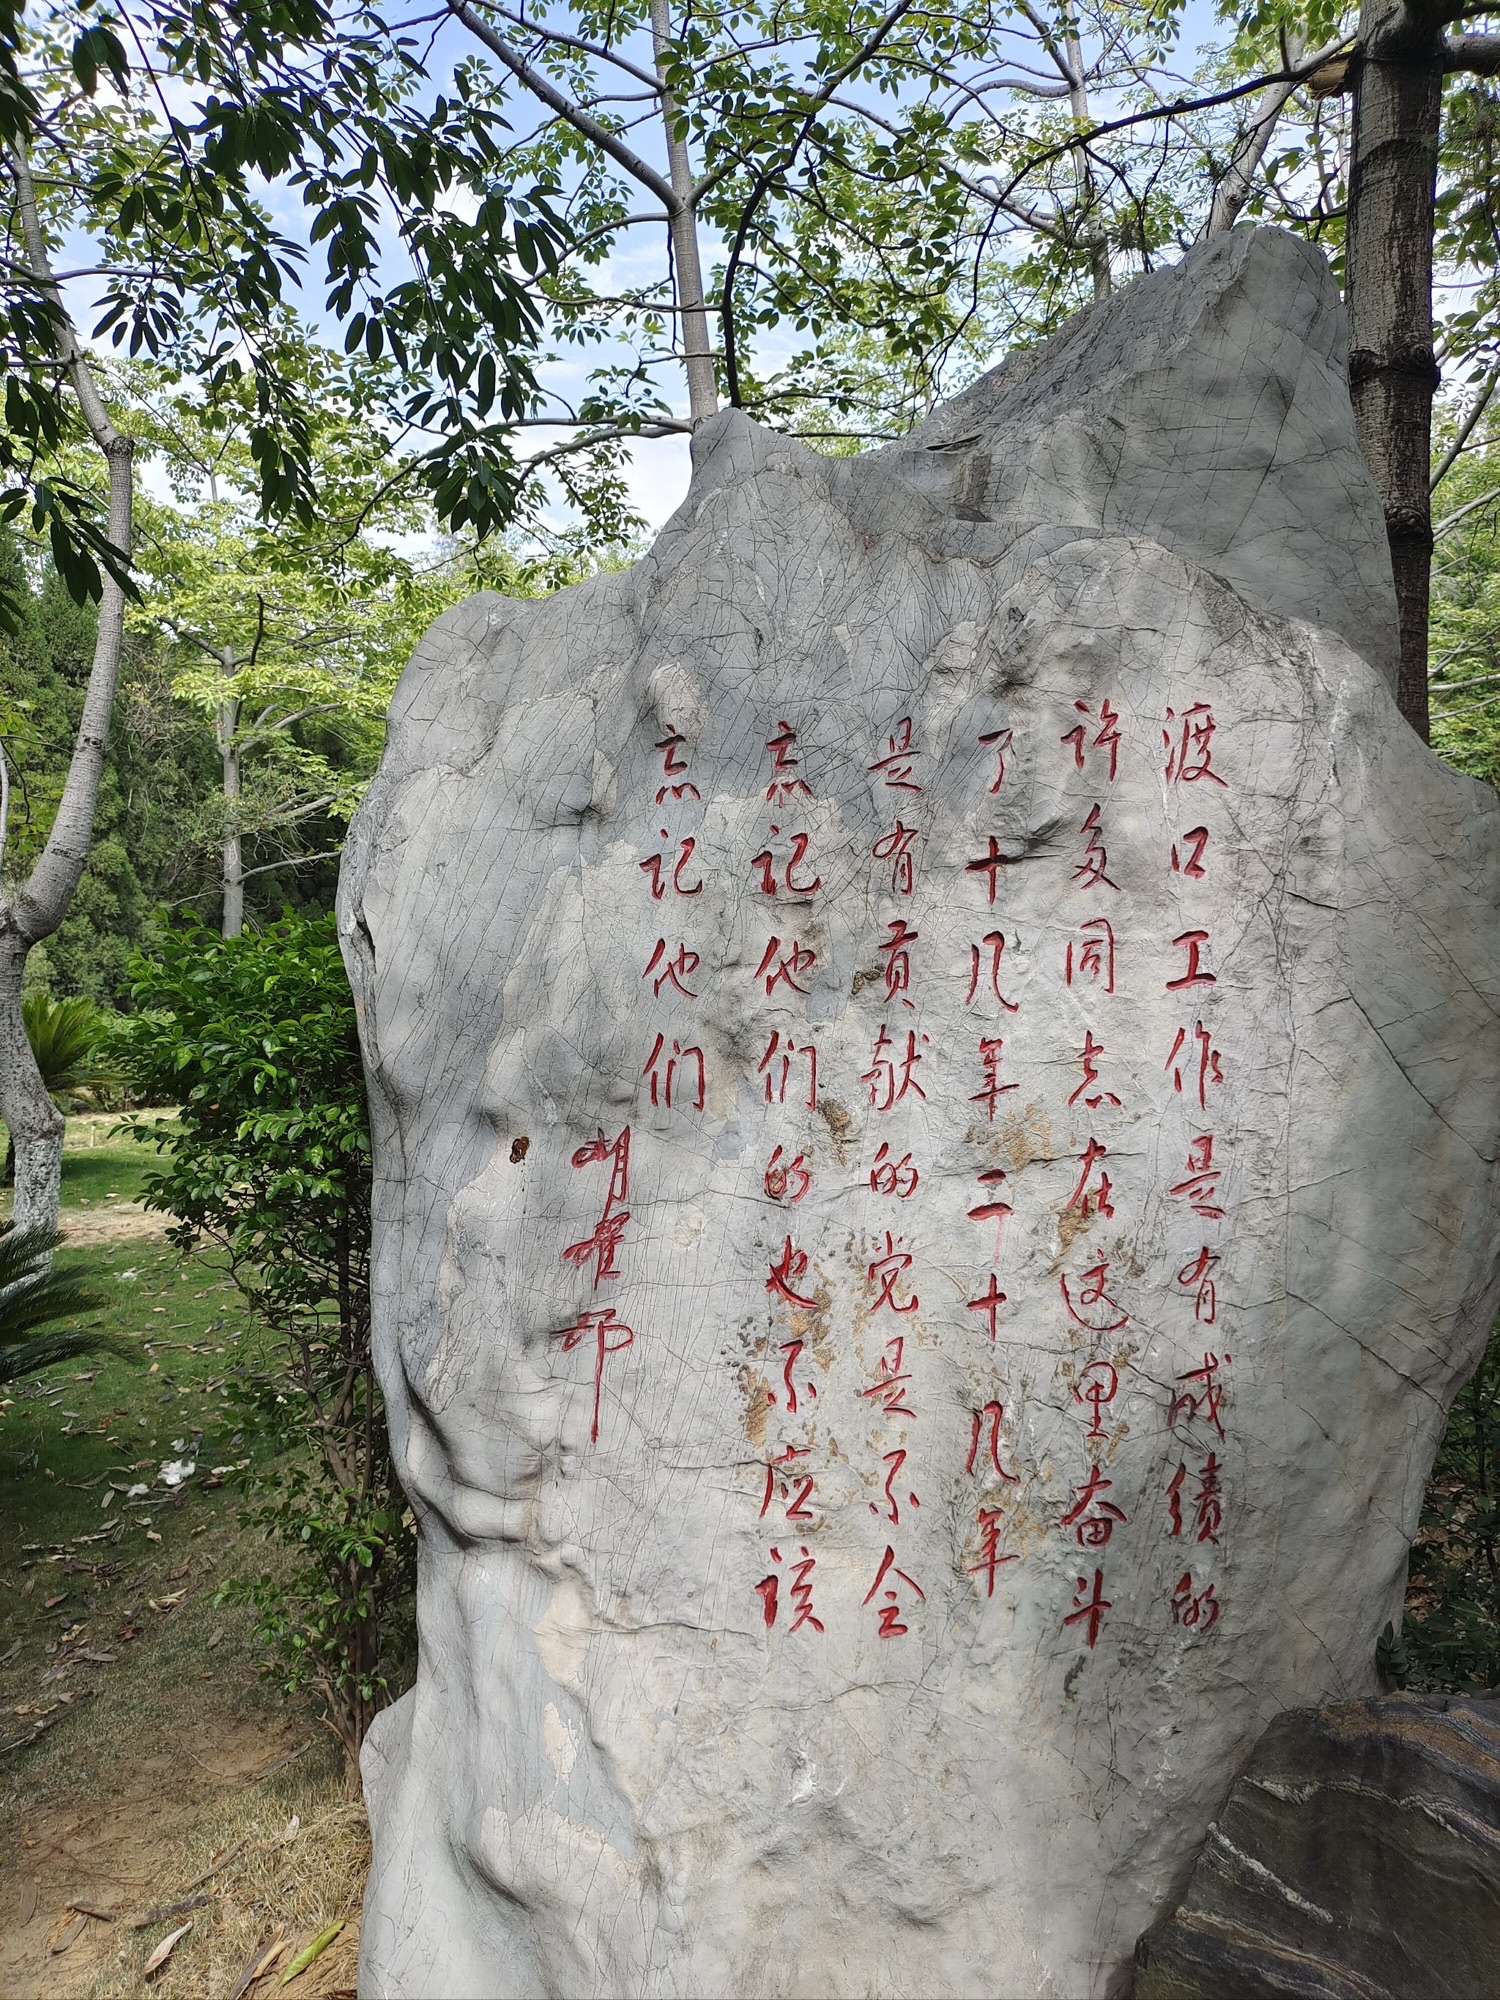 渡口工作是有成绩的
许多同志在这里奋斗
了十几年二十几年
是有贡献的党是不会
忘记他们的也不应该
忘记他们
胡耀邦